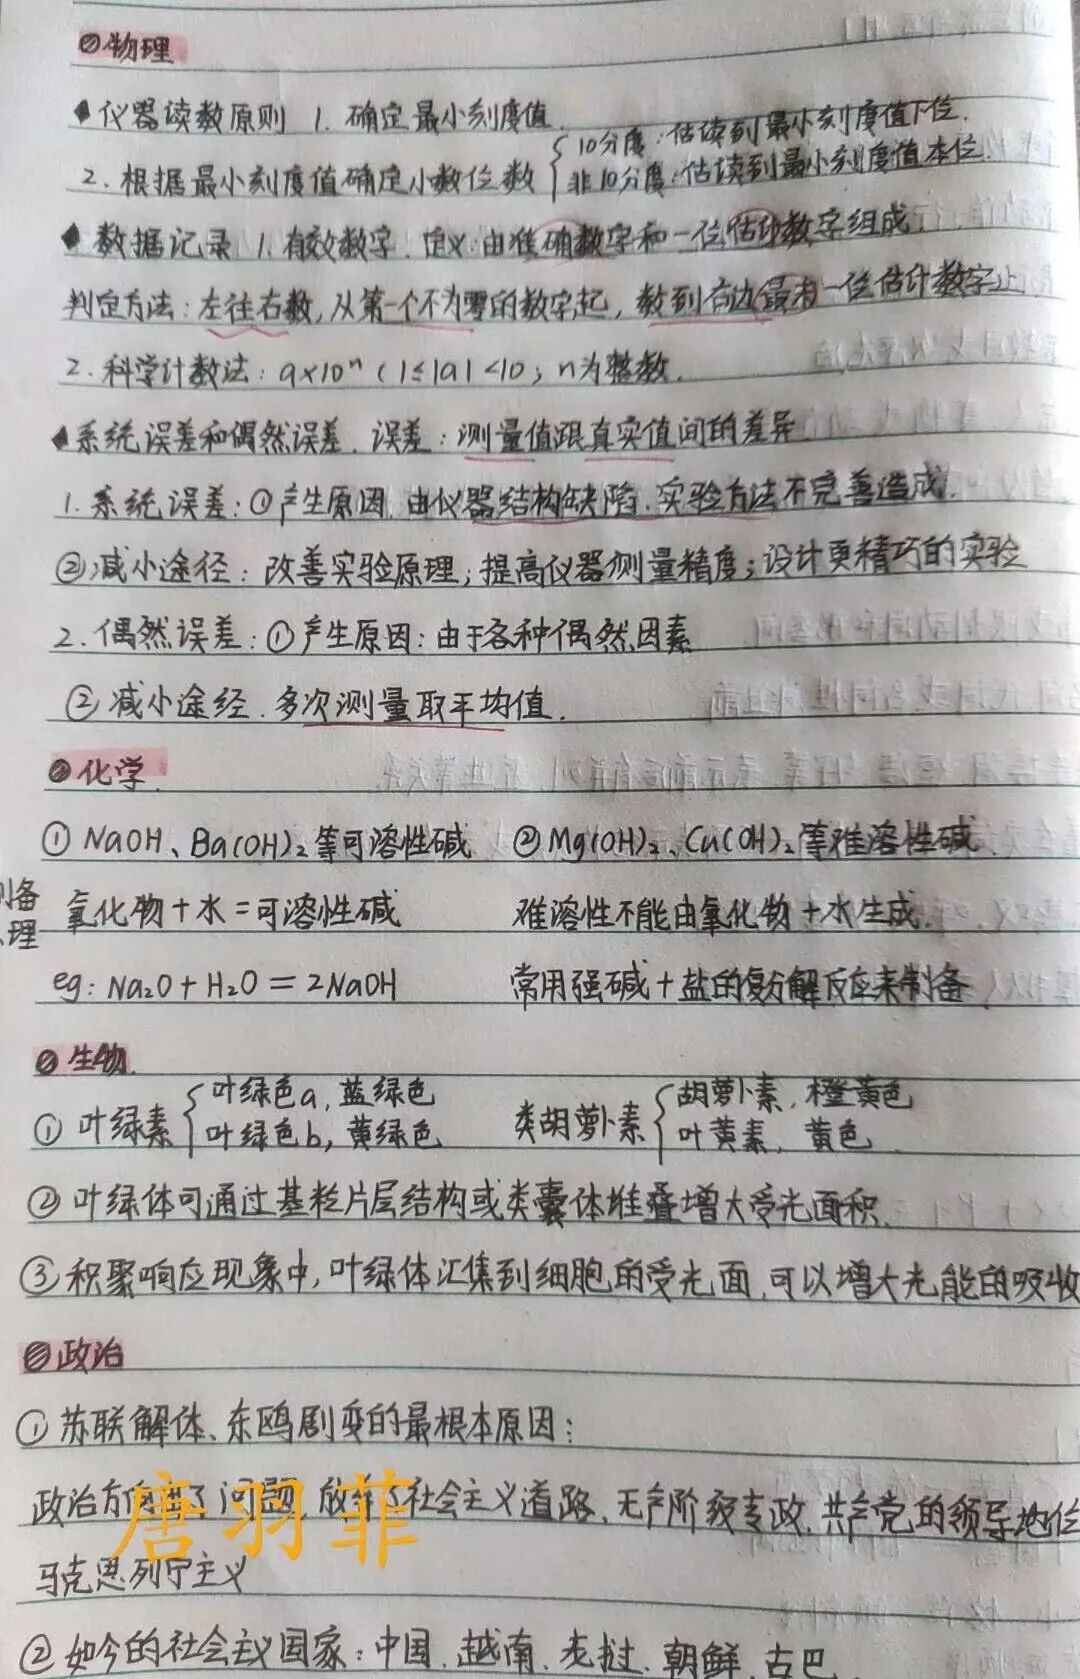 物理
仪器读数原则 1. 确定最小刻度值
2. 根据最小刻度值确定小数位数 { 10分度：估读到最小刻度值下位.
非10分度：估读到最小刻度值本位.
数据记录 1. 有效数字. 定义：由准确数字和一位估计数字组成.
判定方法：左往右数，从第一个不为零的数字起，数到右边最末一位估计数字止
2. 科学计数法：a×10ⁿ (1≤|a|<10；n为整数.
系统误差和偶然误差. 误差：测量值跟真实值间的差异
1. 系统误差：①产生原因. 由仪器结构缺陷. 实验方法不完善造成.
②减小途径：改善实验原理；提高仪器测量精度；设计更精巧的实验
2. 偶然误差：①产生原因：由于各种偶然因素
②减小途经. 多次测量取平均值.
化学
① NaOH、Ba(OH)₂等可溶性碱 ② Mg(OH)₂、Cu(OH)₂等难溶性碱
备 氧化物+水=可溶性碱 难溶性不能由氧化物+水生成.
理
eg: Na₂O+H₂O=2NaOH 常用强碱+盐的复分解反应来制备
生物
① 叶绿素 { 叶绿色a, 蓝绿色 类胡萝卜素 { 胡萝卜素, 橙黄色
叶绿色b, 黄绿色 叶黄素, 黄色
② 叶绿体可通过基粒片层结构或类囊体堆叠增大受光面积.
③ 积聚响应现象中, 叶绿体汇集到细胞的受光面, 可以增大光能的吸收
政治
① 苏联解体、东鸥剧变的最根本原因：
政治方向 了问题, 放弃了社会主义道路, 无产阶级专政, 共产党的领导地位
马克思列宁主义
② 如今的社会主义国家：中国、越南、老挝、朝鲜、古巴
唐羽菲